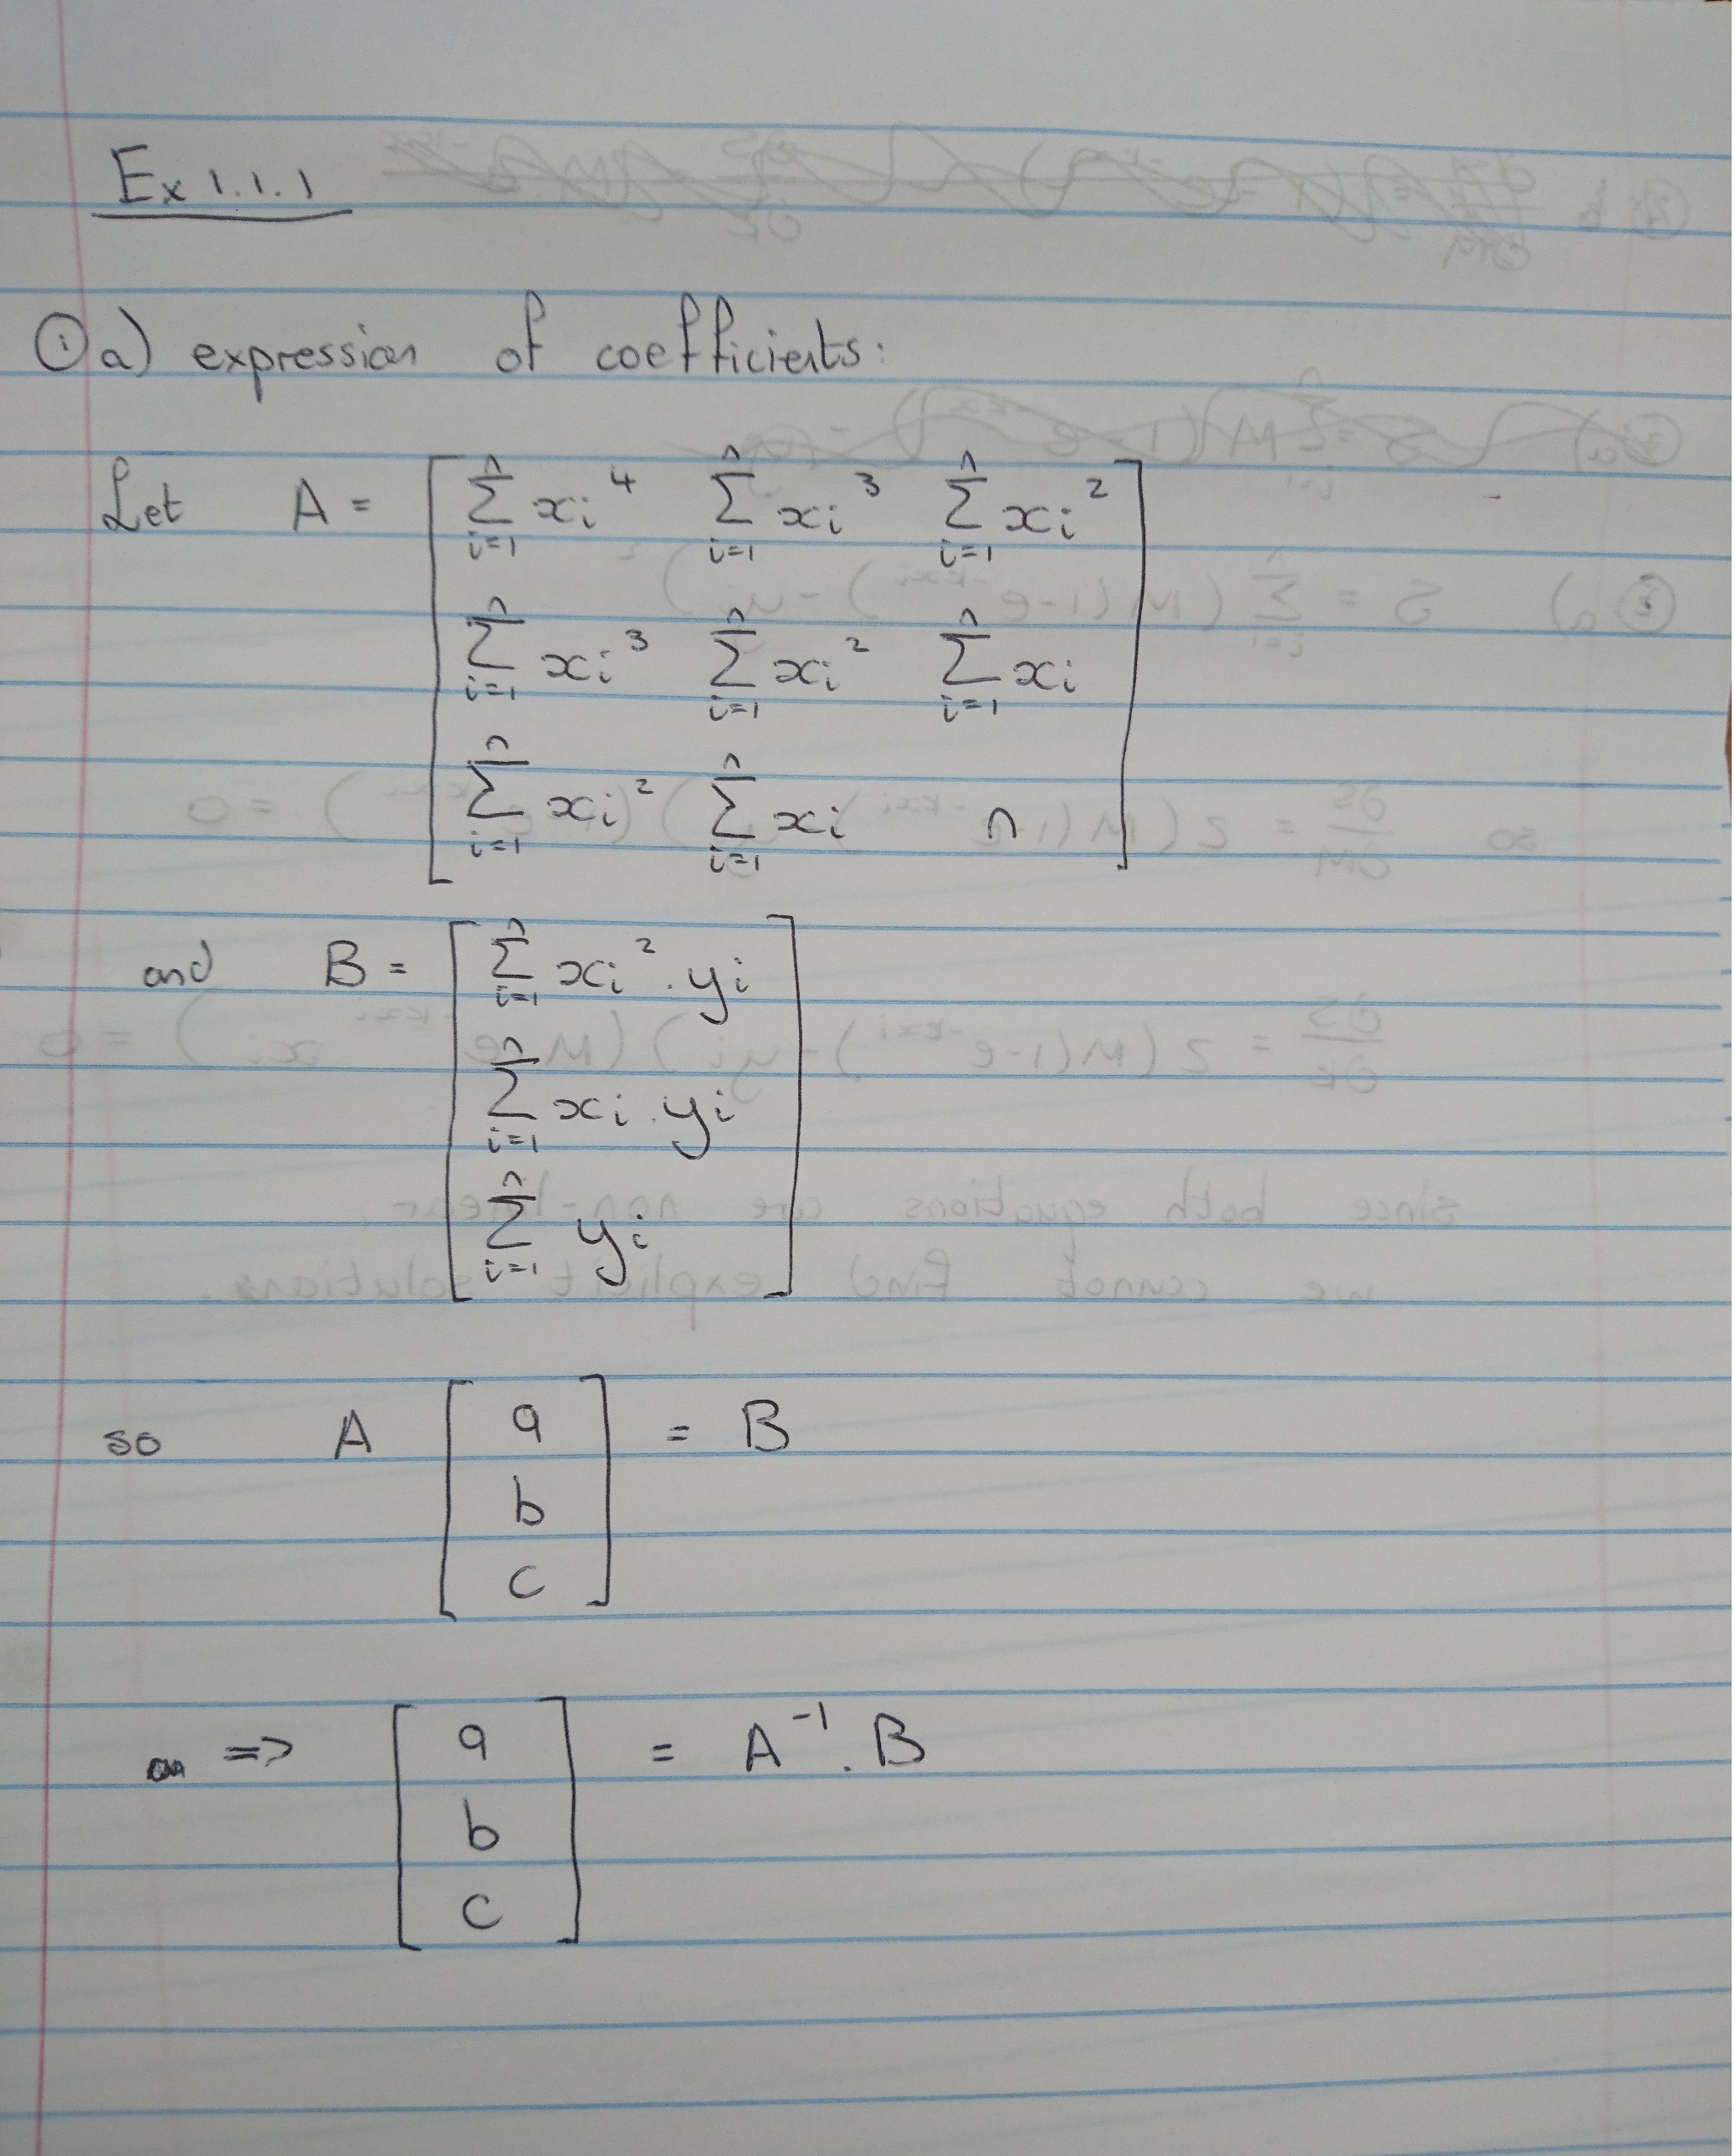 Ex 1.1.1
① a) expression of coefficients:
Let A = [ ∑_{i=1}^{n} xi^4 ∑_{i=1}^{n} xi^3 ∑_{i=1}^{n} xi^2
∑_{i=1}^{n} xi^3 ∑_{i=1}^{n} xi^2 ∑_{i=1}^{n} xi
∑_{i=1}^{n} xi^2 ∑_{i=1}^{n} xi n ]
and B = [ ∑_{i=1}^{n} xi^2 . yi
∑_{i=1}^{n} xi . yi
∑_{i=1}^{n} yi ]
so A [ a = B
b
c ]
=> [ a = A^{-1} . B
b
c ]